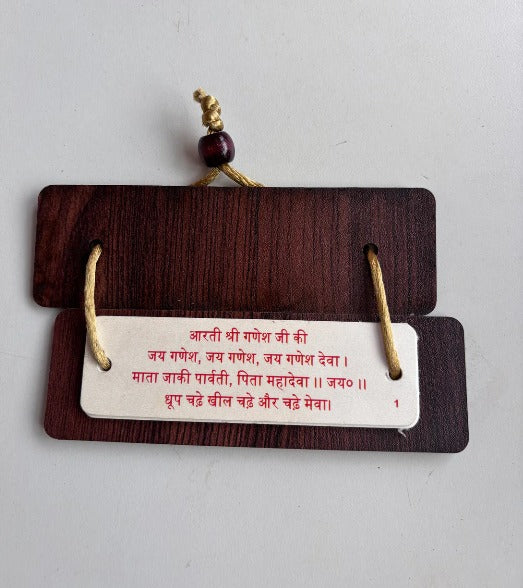 आरती श्री गणेश जी की
जय गणेश, जय गणेश, जय गणेश देवा ।
माता जाकी पार्वती, पिता महादेवा ।। जय० ।।
धूप चढ़े खील चढ़े और चढ़े मेवा। 1